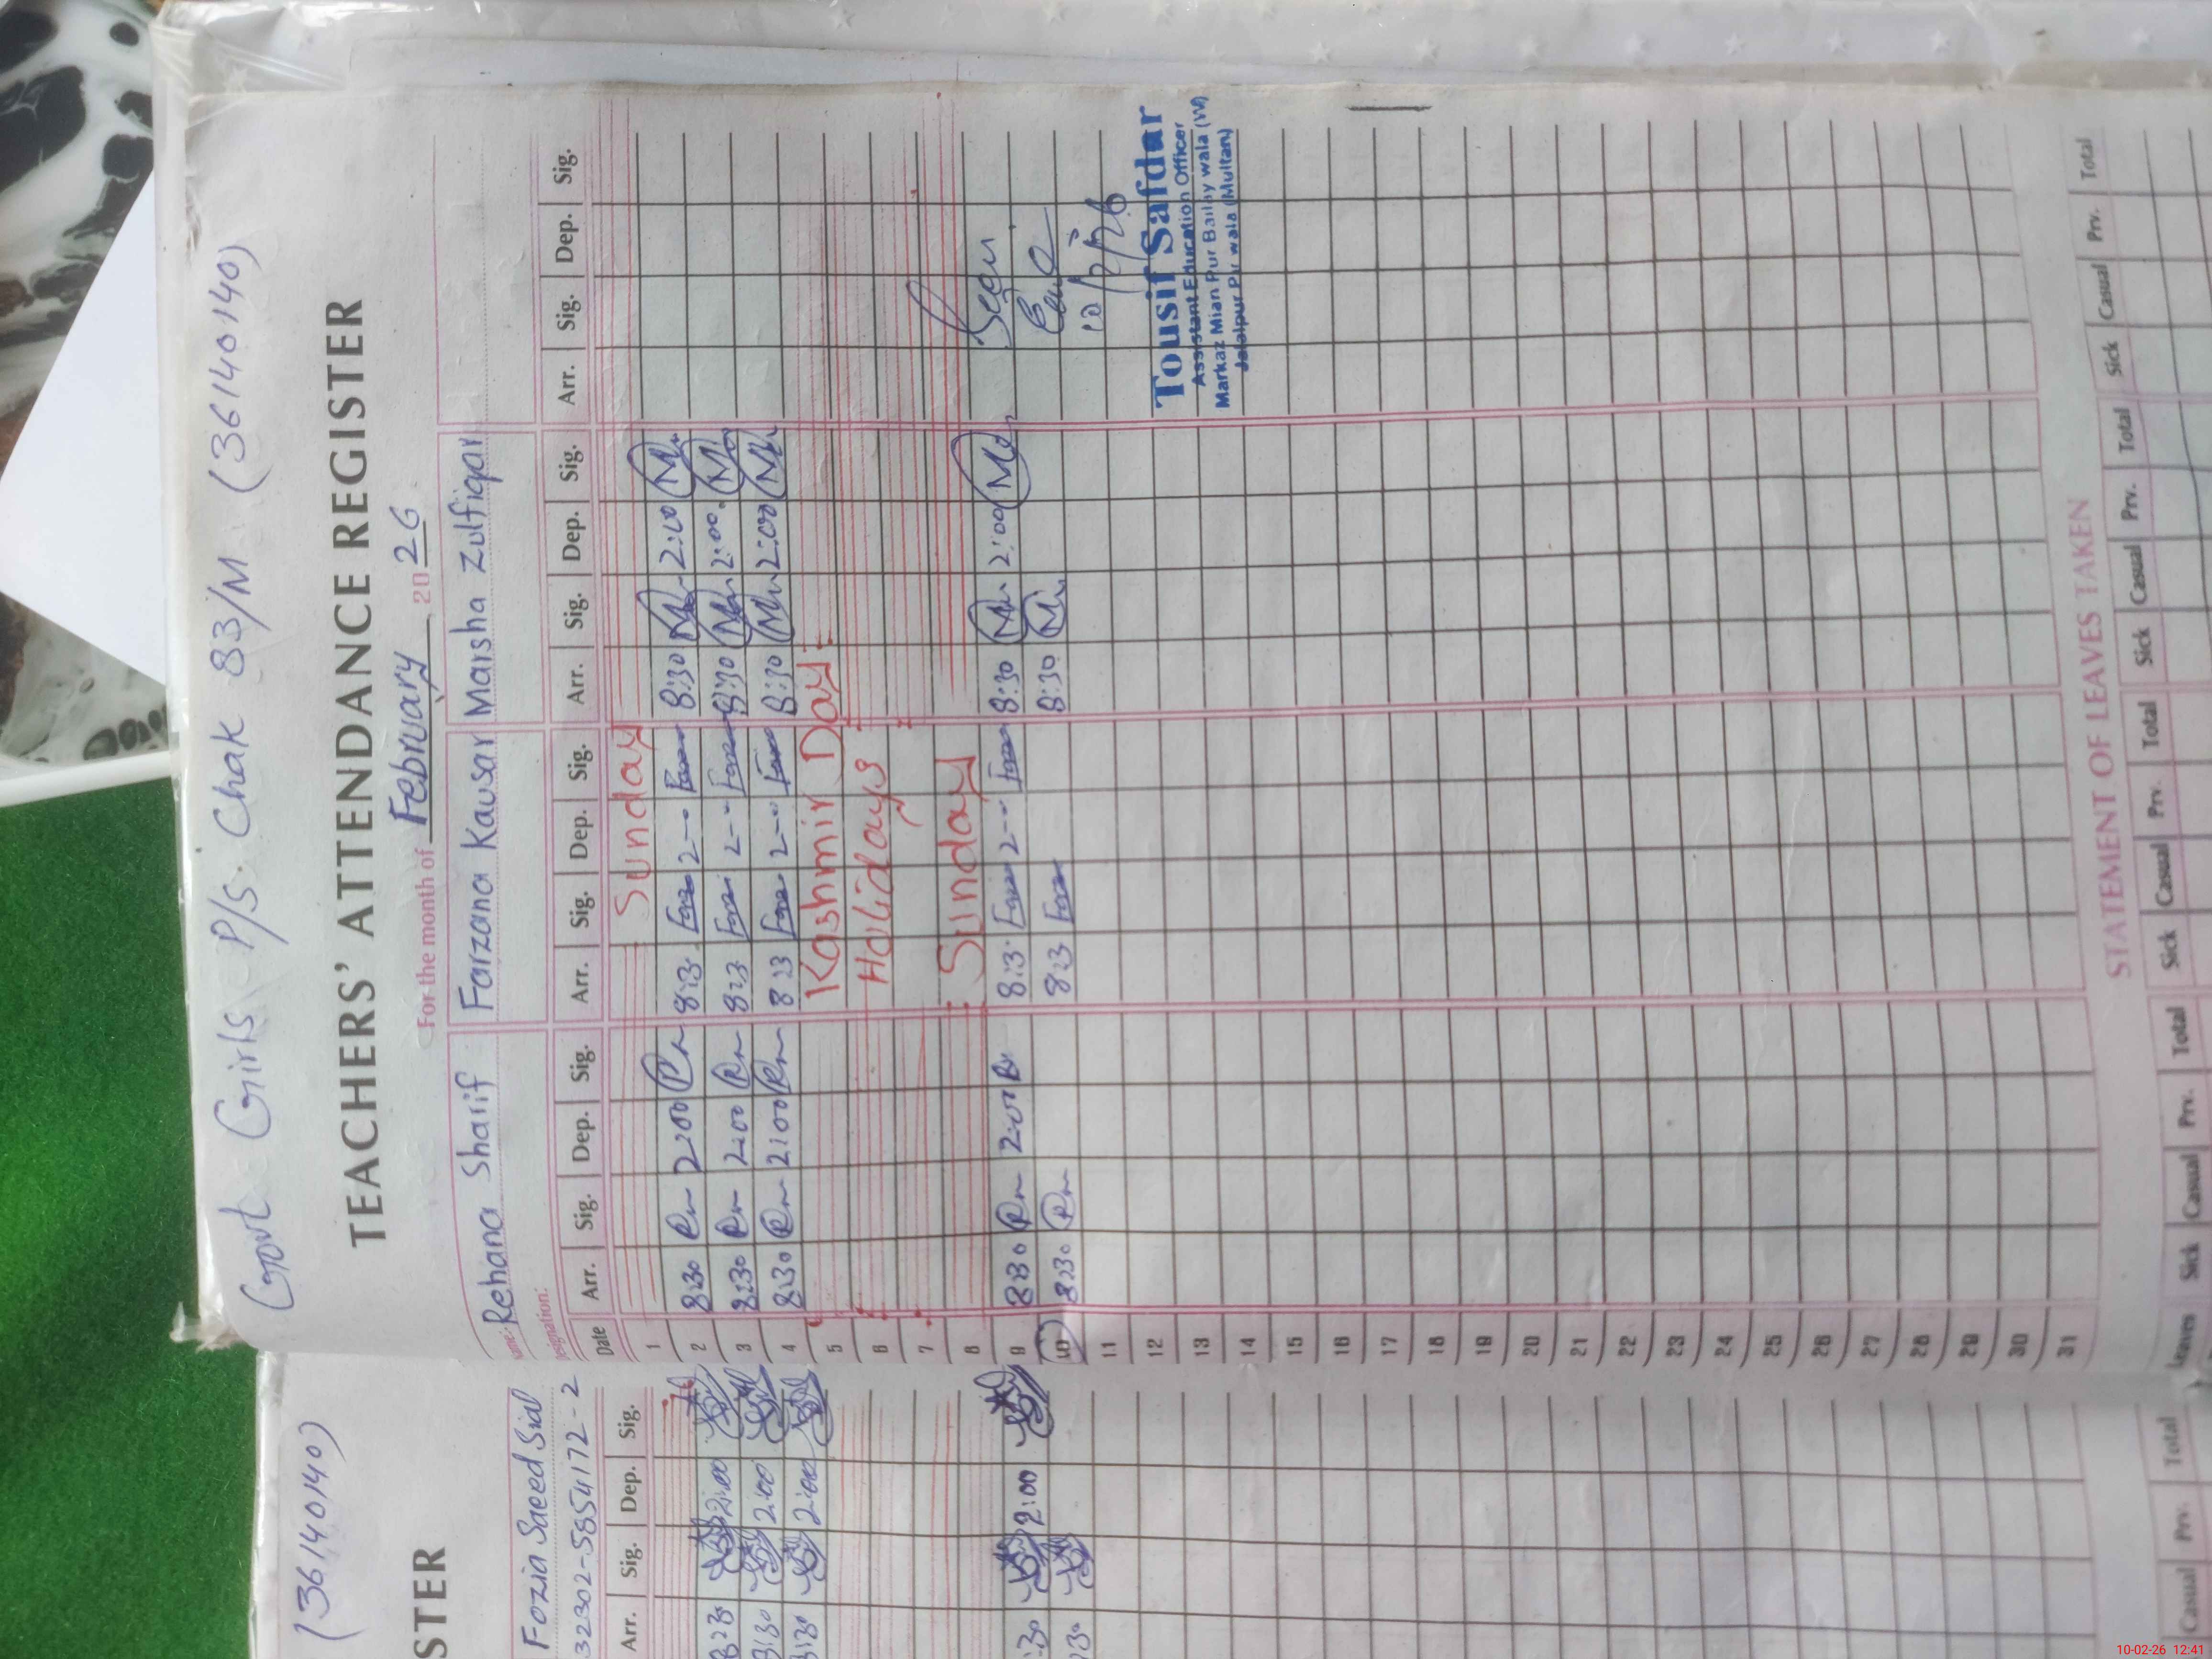 Govt Girls P/S. Chak 83/M (36140140)
TEACHERS' ATTENDANCE REGISTER
For the month of February 2026
Name: Rehana Sharif Farzana Kausar Marsha Zulfiqar
Designation:
Date Arr. Sig. Dep. Sig. Arr. Sig. Dep. Sig. Arr. Sig. Dep. Sig. Arr. Sig. Dep. Sig.
1 Sunday
2 8:30 2:00 8:3 2-- 8:30 2:00
3 8:30 2:00 8:3 2-- 8:30 2:00
4 8:30 2:00 8:3 2-- 8:30 2:00
5 Kashmir Day
6 Holidays
7
8 Sunday
9 8:30 2:00 8:3 2-- 8:30 2:00 Seen
10 8:30 8:3 8:30
11
12
13
14
15
16
17
18
19
20
21
22
23
24
25
26
27
28
29
30
31
Tousif Safdar
Assistant Education Officer
Markaz Mian Pur Bailay wala (W)
Jalalpur Pir wala (Multan)
STATEMENT OF LEAVES TAKEN
Leaves Sick Casual Prv. Total Sick Casual Prv. Total Sick Casual Prv. Total Sick Casual Prv. Total
(36140140)
STER
Fozia Saeed Sial
32302-5854172-2
Arr. Sig. Dep. Sig.
2:00
2:00
2:00
:30 2:00
:30
Casual Prv. Total
10-02-26 12:41